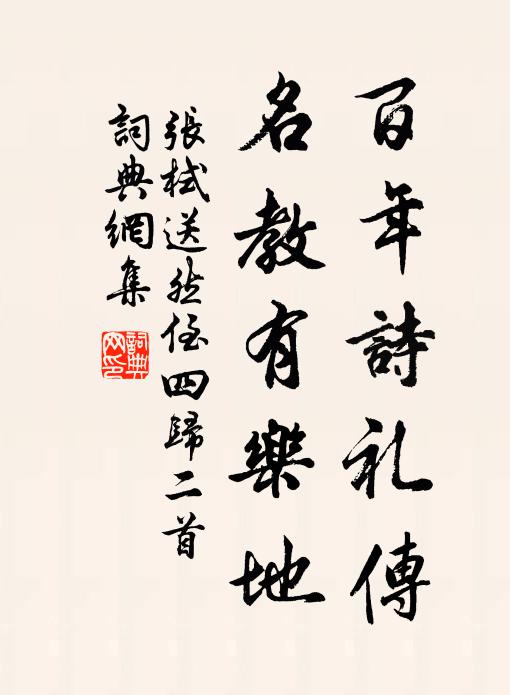 百年詩礼傳
名教有樂地
張栻送然侄四歸二首
詞典網集
詞典網印